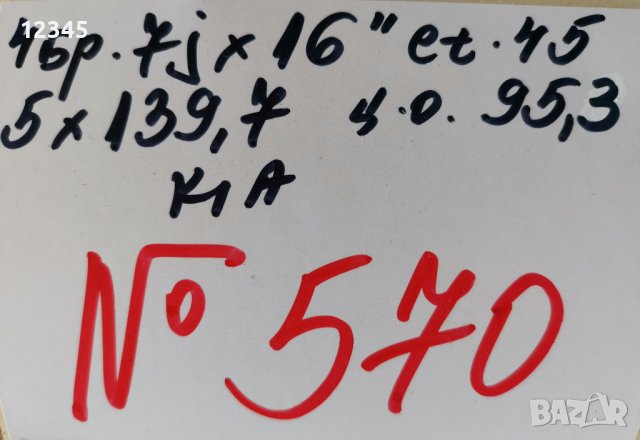 12345
4бр. 7j x 16" et. 45
5 x 139,7 ц.о. 95,3
KIA
№ 570
BAZAR